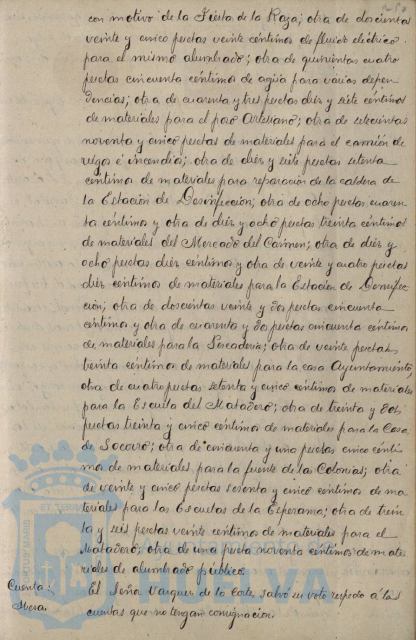 con motivo de la Fiesta de la Raza; otra de doscientas
veinte y cinco pesetas veinte céntimos de fluido eléctrico
para el mismo alumbrado; otra de quinientas cuatro
pesetas cincuenta céntimos de agua para varias depen
dencias; otra de cuarenta y tres pesetas diez y siete céntimos
de materiales para el pozo Artesiano; otra de setecientas
noventa y cinco pesetas de materiales para el camión de
riego é incendio; otra de diez y siete pesetas setenta
céntimos de materiales para reparación de la caldera de
la Estación de Desinfección; otra de ocho pesetas cuaren
ta céntimos y otra de diez y ocho pesetas treinta céntimos
de materiales del Mercado del Carmen; otra de diez y
ocho pesetas diez céntimos y otra de veinte y cuatro pesetas
diez céntimos de materiales para la Estación de Desinfec
ción; otra de doscientas veinte y dos pesetas cincuenta
céntimos y otra de cuarenta y dos pesetas cincuenta céntimos
de materiales para la Pescadería; otra de veinte pesetas
treinta céntimos de materiales para la casa Ayuntamiento;
otra de cuatro pesetas setenta y cinco céntimos de materiales
para la Escuela del Matadero; otra de treinta y dos
pesetas treinta y cinco céntimos de materiales para la Casa
de Socorro; otra de cincuenta y una pesetas cinco cénti
mos de materiales para la fuente de las Colonias; otra
de veinte y cinco pesetas sesenta y cinco céntimos de ma
teriales para las Escuelas de la Esperanza; otra de trein
ta y seis pesetas veinte céntimos de materiales para el
Matadero; otra de una peseta noventa céntimos de mate
riales de alumbrado público.
Cuenta:
El Señor Vazquez de la Corte salvó su voto respecto á las
cuentas que no tengan consignación.